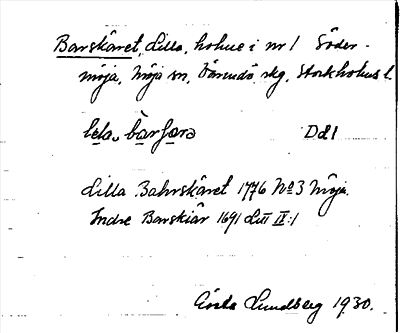 Barskäret, Lilla, holme i nr 1 Söder-
möja, Möja sn, Värmdö skg, Stockholms l.
lɩla bàrʃærə Dd1
Lilla Bahrskäret 1776 Nº 3 Möja.
Indre Barskiär 1691 Litt IV:1
Gösta Lundberg 1930.